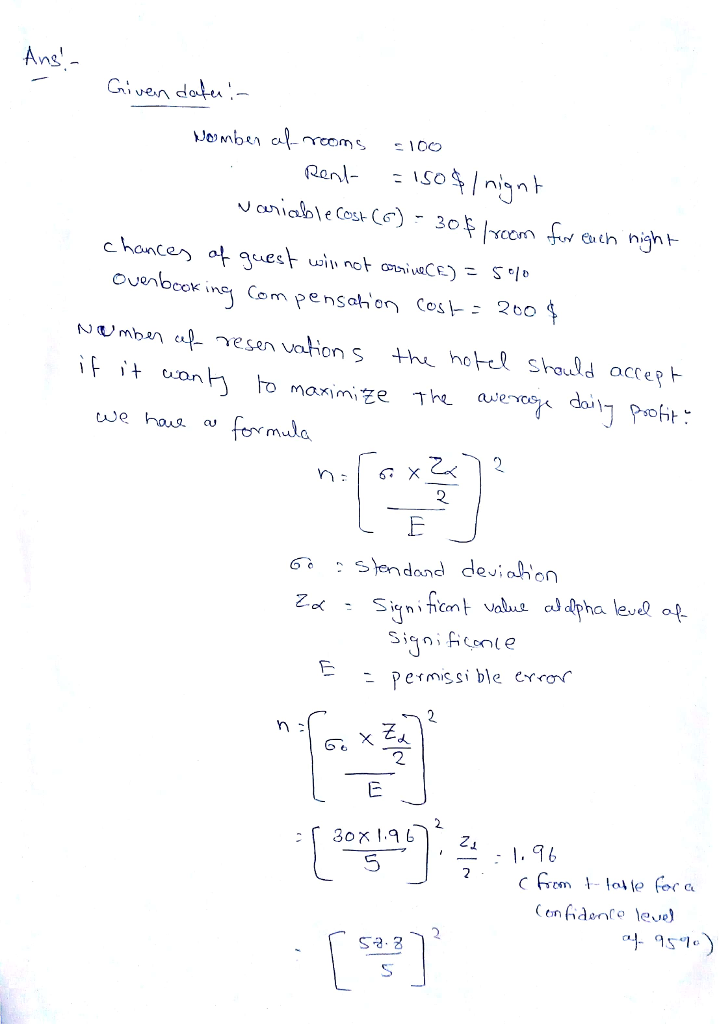 Ans:-
Given data:-
Number of rooms = 100
Rent = 150$ / night
variable cost (σ) = 30$ /room for each night
chances of guest will not arrive(E) = 5%
Overbooking compensation cost = 200 $
Number of reservations the hotel should accept
if it wants to maximize The average daily profit:
we have a formula
n = [ σ₀ × Zα/2 / E ]²
σ₀ : Standard deviation
Zα = Significant value at alpha level of
significance
E = permissible error
n = [ σ₀ × Zα/2 / E ]²
= [ 30×1.96 / 5 ]² , Zα/2 = 1.96
( from t-table for a
Confidence level
of 95%)
= [ 58.8 / 5 ]²